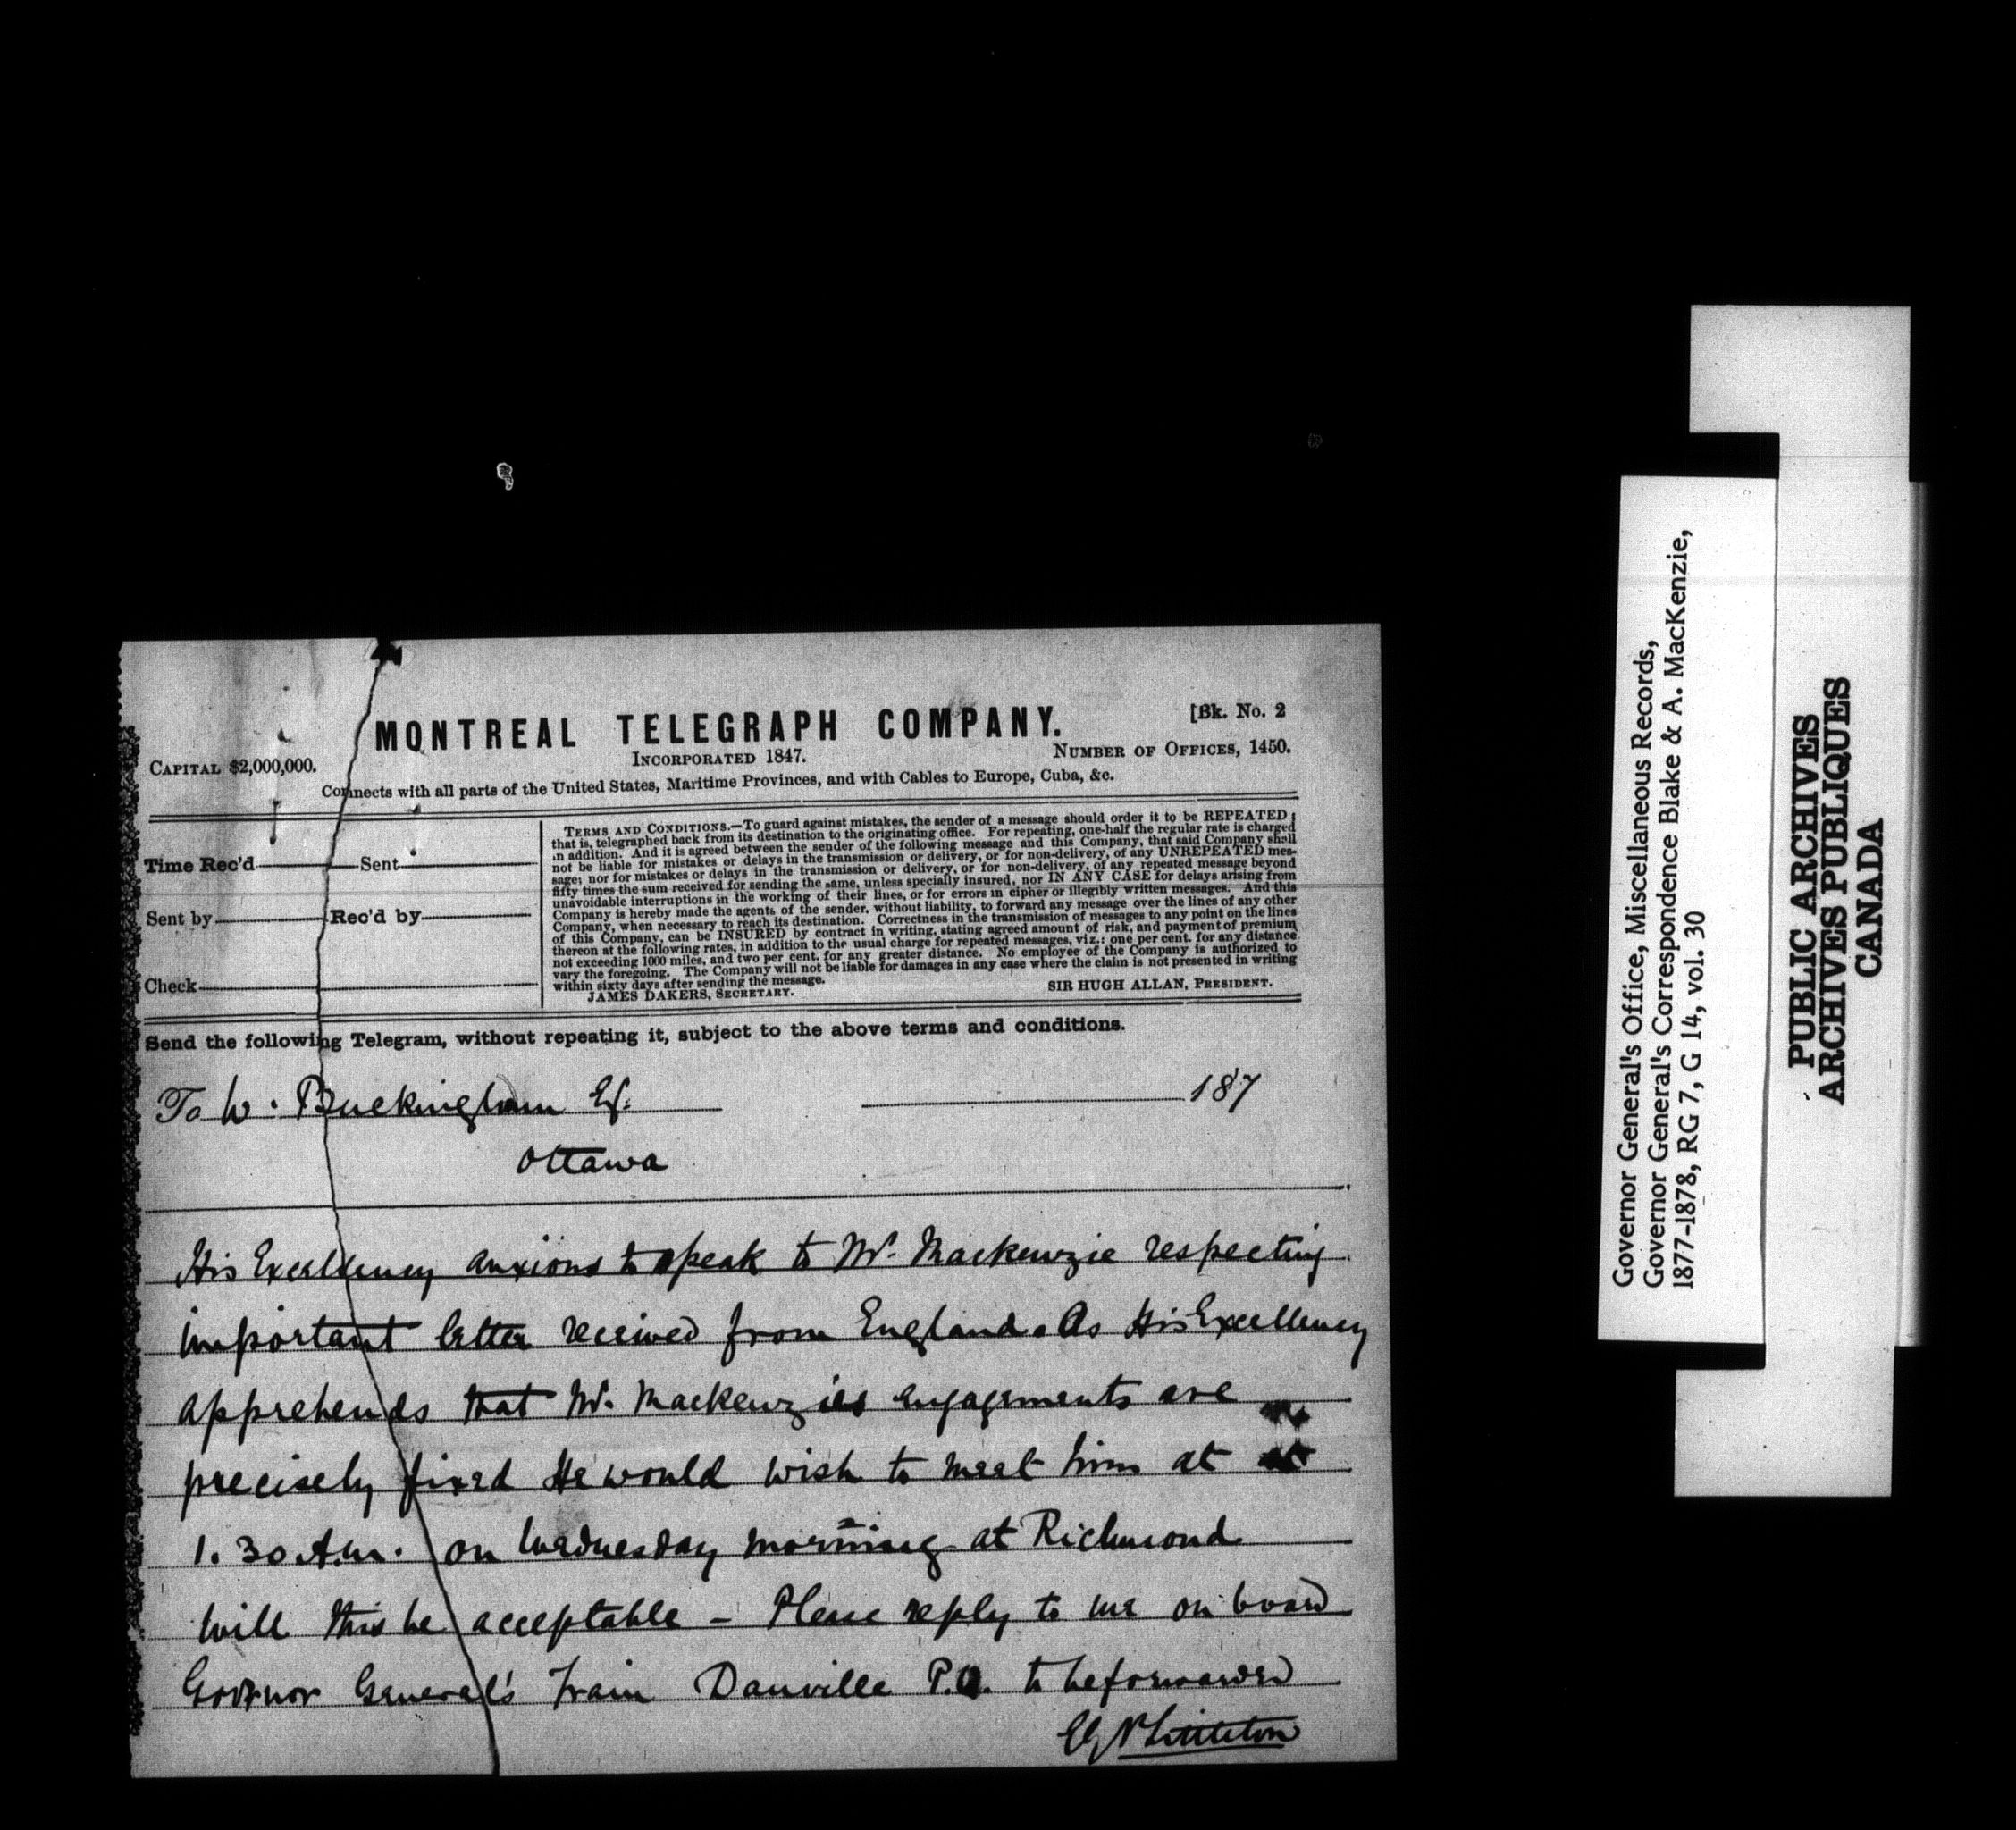 MONTREAL TELEGRAPH COMPANY.
[Bk. No. 2
CAPITAL $2,000,000.
INCORPORATED 1847.
NUMBER OF OFFICES, 1450.
Connects with all parts of the United States, Maritime Provinces, and with Cables to Europe, Cuba, &c.
Time Rec'd Sent
Sent by Rec'd by
Check
TERMS AND CONDITIONS.—To guard against mistakes, the sender of a message should order it to be REPEATED;
that is, telegraphed back from its destination to the originating office. For repeating, one-half the regular rate is charged
in addition. And it is agreed between the sender of the following message and this Company, that said Company shall
not be liable for mistakes or delays in the transmission or delivery, or for non-delivery, of any UNREPEATED mes-
sage; nor for mistakes or delays in the transmission or delivery, or for non-delivery, of any repeated message beyond
fifty times the sum received for sending the same, unless specially insured, nor IN ANY CASE for delays arising from
unavoidable interruptions in the working of their lines, or for errors in cipher or illegibly written messages. And this
Company is hereby made the agents of the sender, without liability, to forward any message over the lines of any other
Company, when necessary to reach its destination. Correctness in the transmission of messages to any point on the lines
of this Company, can be INSURED by contract in writing, stating agreed amount of risk, and payment of premium
thereon at the following rates, in addition to the usual charge for repeated messages, viz.: one per cent. for any distance
not exceeding 1000 miles, and two per cent. for any greater distance. No employee of the Company is authorized to
vary the foregoing. The Company will not be liable for damages in any case where the claim is not presented in writing
within sixty days after sending the message.
JAMES DAKERS, SECRETARY. SIR HUGH ALLAN, PRESIDENT.
Send the following Telegram, without repeating it, subject to the above terms and conditions.
To W. Buckingham Esq. 187
Ottawa
His Excellency anxious to speak to Mr. Mackenzie respecting
important letter received from England. As His Excellency
apprehends that Mr. Mackenzies engagements are
precisely fixed He would wish to meet him at
1.30 A.m. on Wednesday morning at Richmond
Will this be acceptable – Please reply to me on board
Governor General's Train Danville P.Q. to be forwarded
Littleton
Governor General's Office, Miscellaneous Records,
Governor General's Correspondence Blake & A. MacKenzie,
1877-1878, RG 7, G 14, vol. 30
PUBLIC ARCHIVES
ARCHIVES PUBLIQUES
CANADA